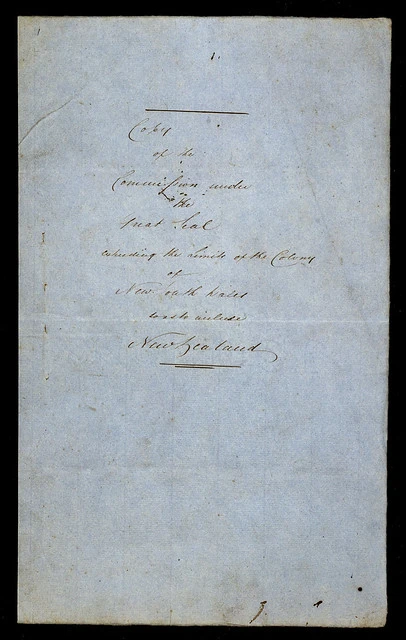 1.
Copy
of the
Commission under
the
Great Seal
extending the Limits of the Colony
of
New South Wales
so as to include
New Zealand